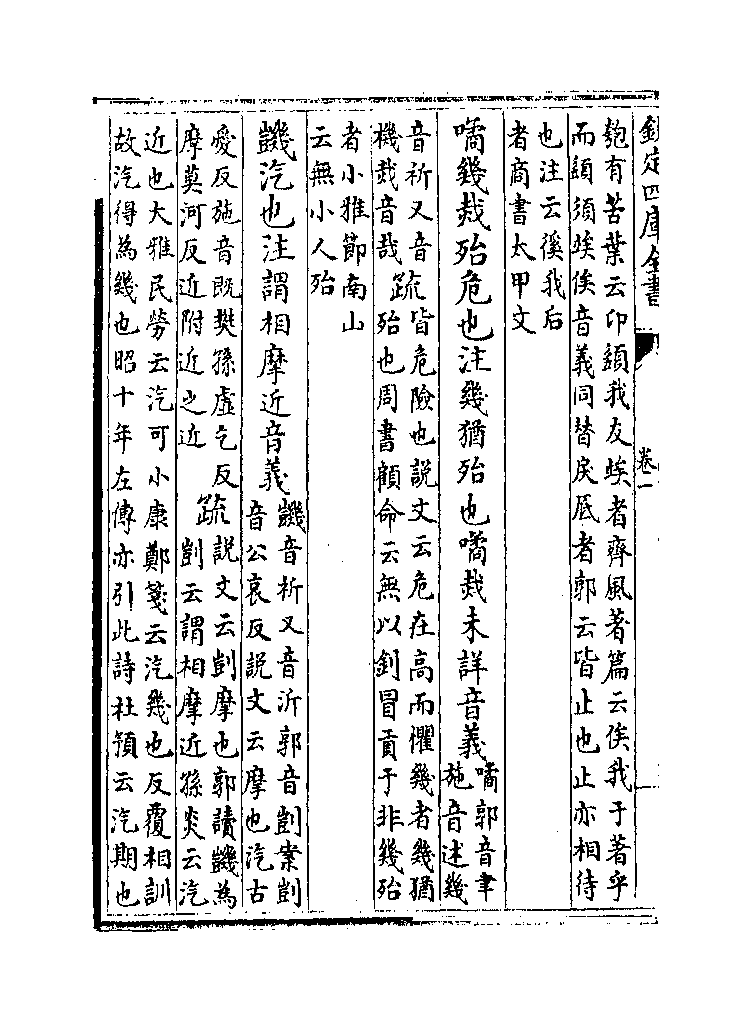 欽定四庫全書
卷一
匏有苦葉云卬頟我友竢者齊風著篇云俟我于著乎
而頟須竢俟音義同替戾厎者郭云皆止也止亦相待
也注云徯我后
者商書太甲文
噊幾烖殆危也注幾猶殆也噊烖未詳音義
噊郭音聿
施音述幾
音祈又音
機烖音哉
疏
皆危險也說文云危在高而懼幾者幾猶
殆也周書顧命云無以釗冒貢于非幾殆
者小雅節南山
云無小人殆
譏汔也注謂相摩近音義
譏音祈又音沂郭音剴案剴
音公哀反說文云摩也汔古
愛反施音既樊孫虛乞反
摩莫河反近附近之近
疏
說文云剴摩也郭讀譏為
剴云謂相摩近孫炎云汔
近也大雅民勞云汔可小康鄭箋云汔幾也反覆相訓
故汔得為幾也昭十年左傳亦引此詩杜預云汔期也